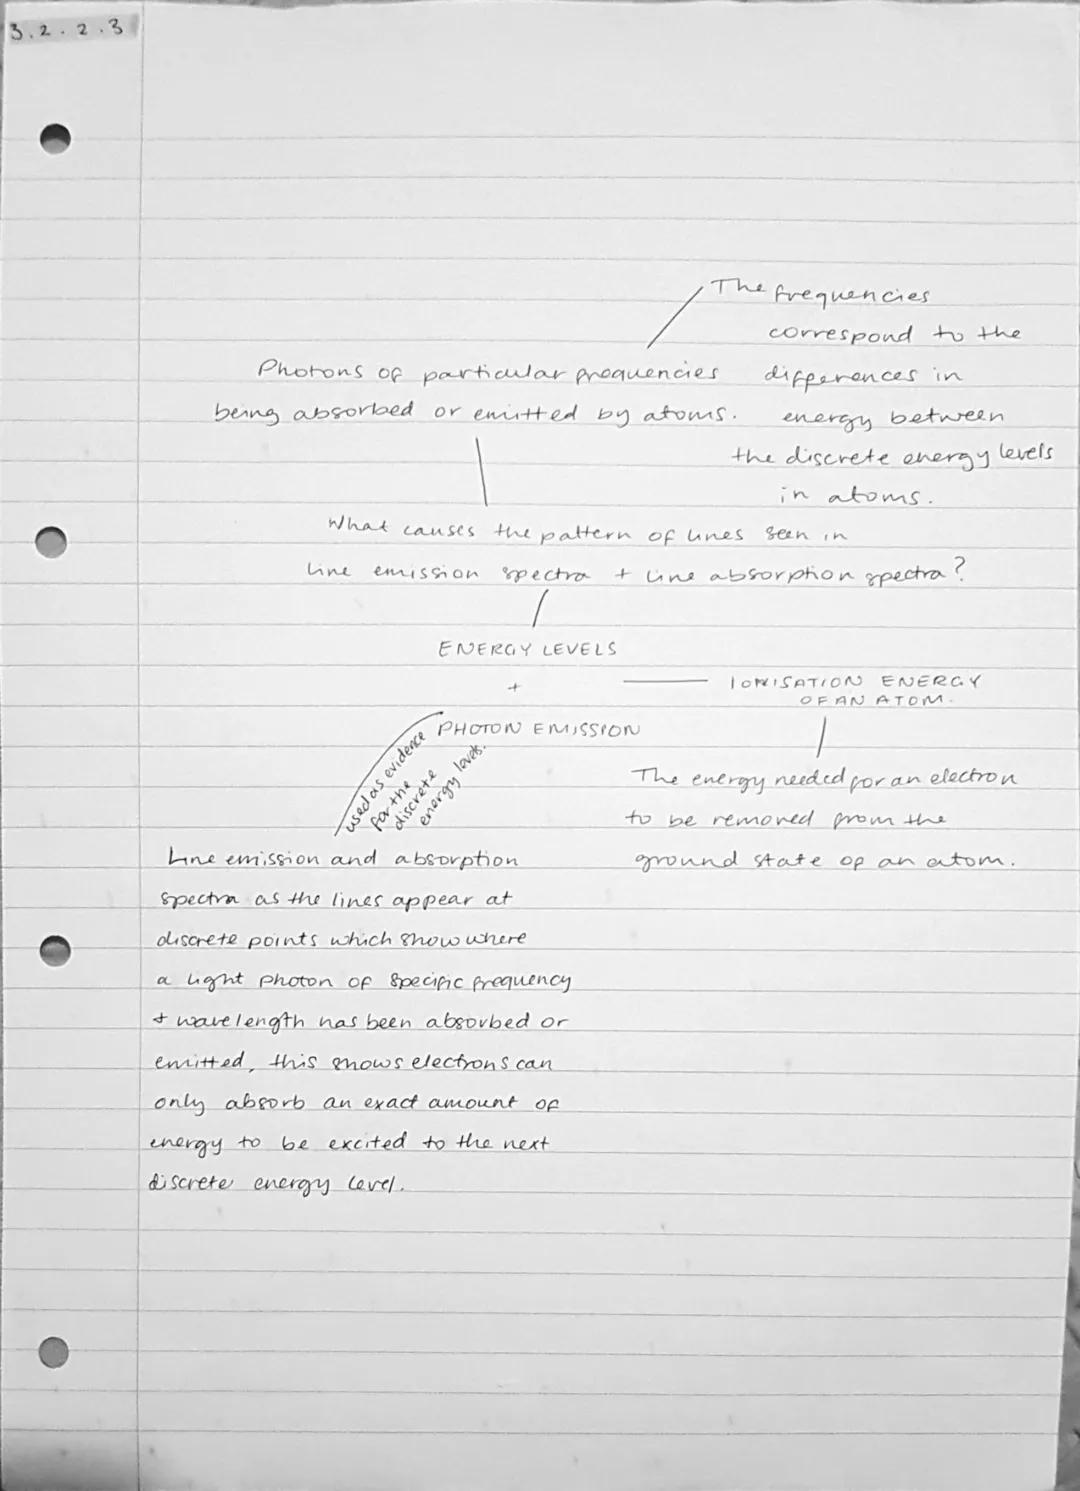 3.2.2.3
The frequencies
correspond to the
Photons of particular frequencies
differences in
being absorbed or emitted by atoms.
energy between
the discrete energy levels
in atoms.
What causes the pattern of lines seen in
line emission spectra + line absorption spectra?
ENERGY LEVELS
+
IONISATION ENERGY
OF AN ATOM.
PHOTON EMISSION
used as evidence
for the
discrete
energy levels.
The energy needed for an electron
to be removed from the
ground state of an atom.
Line emission and absorption
spectra as the lines appear at
discrete points which show where
a light photon of specific frequency
+ wavelength has been absorbed or
emitted, this shows electrons can
only absorb an exact amount of
energy to be excited to the next
discrete energy level.